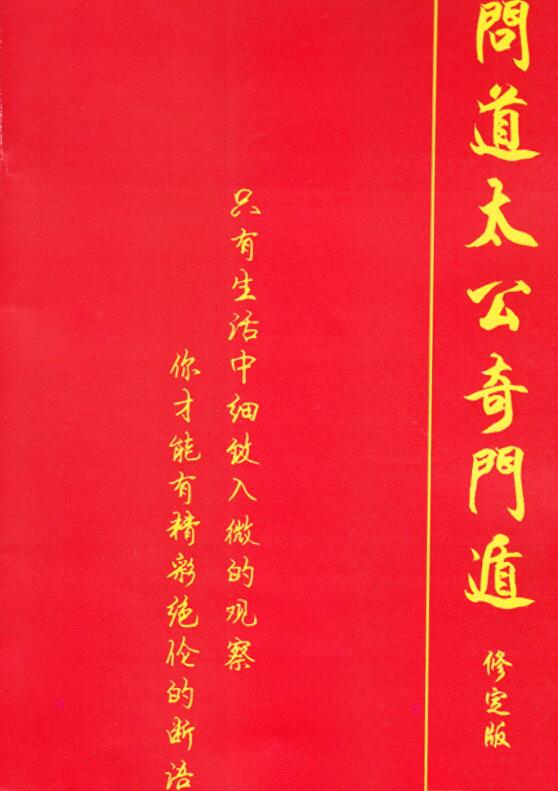 問道太公奇門遁
修定版
只有生活中细致入微的观察
你才能有精彩绝伦的断语